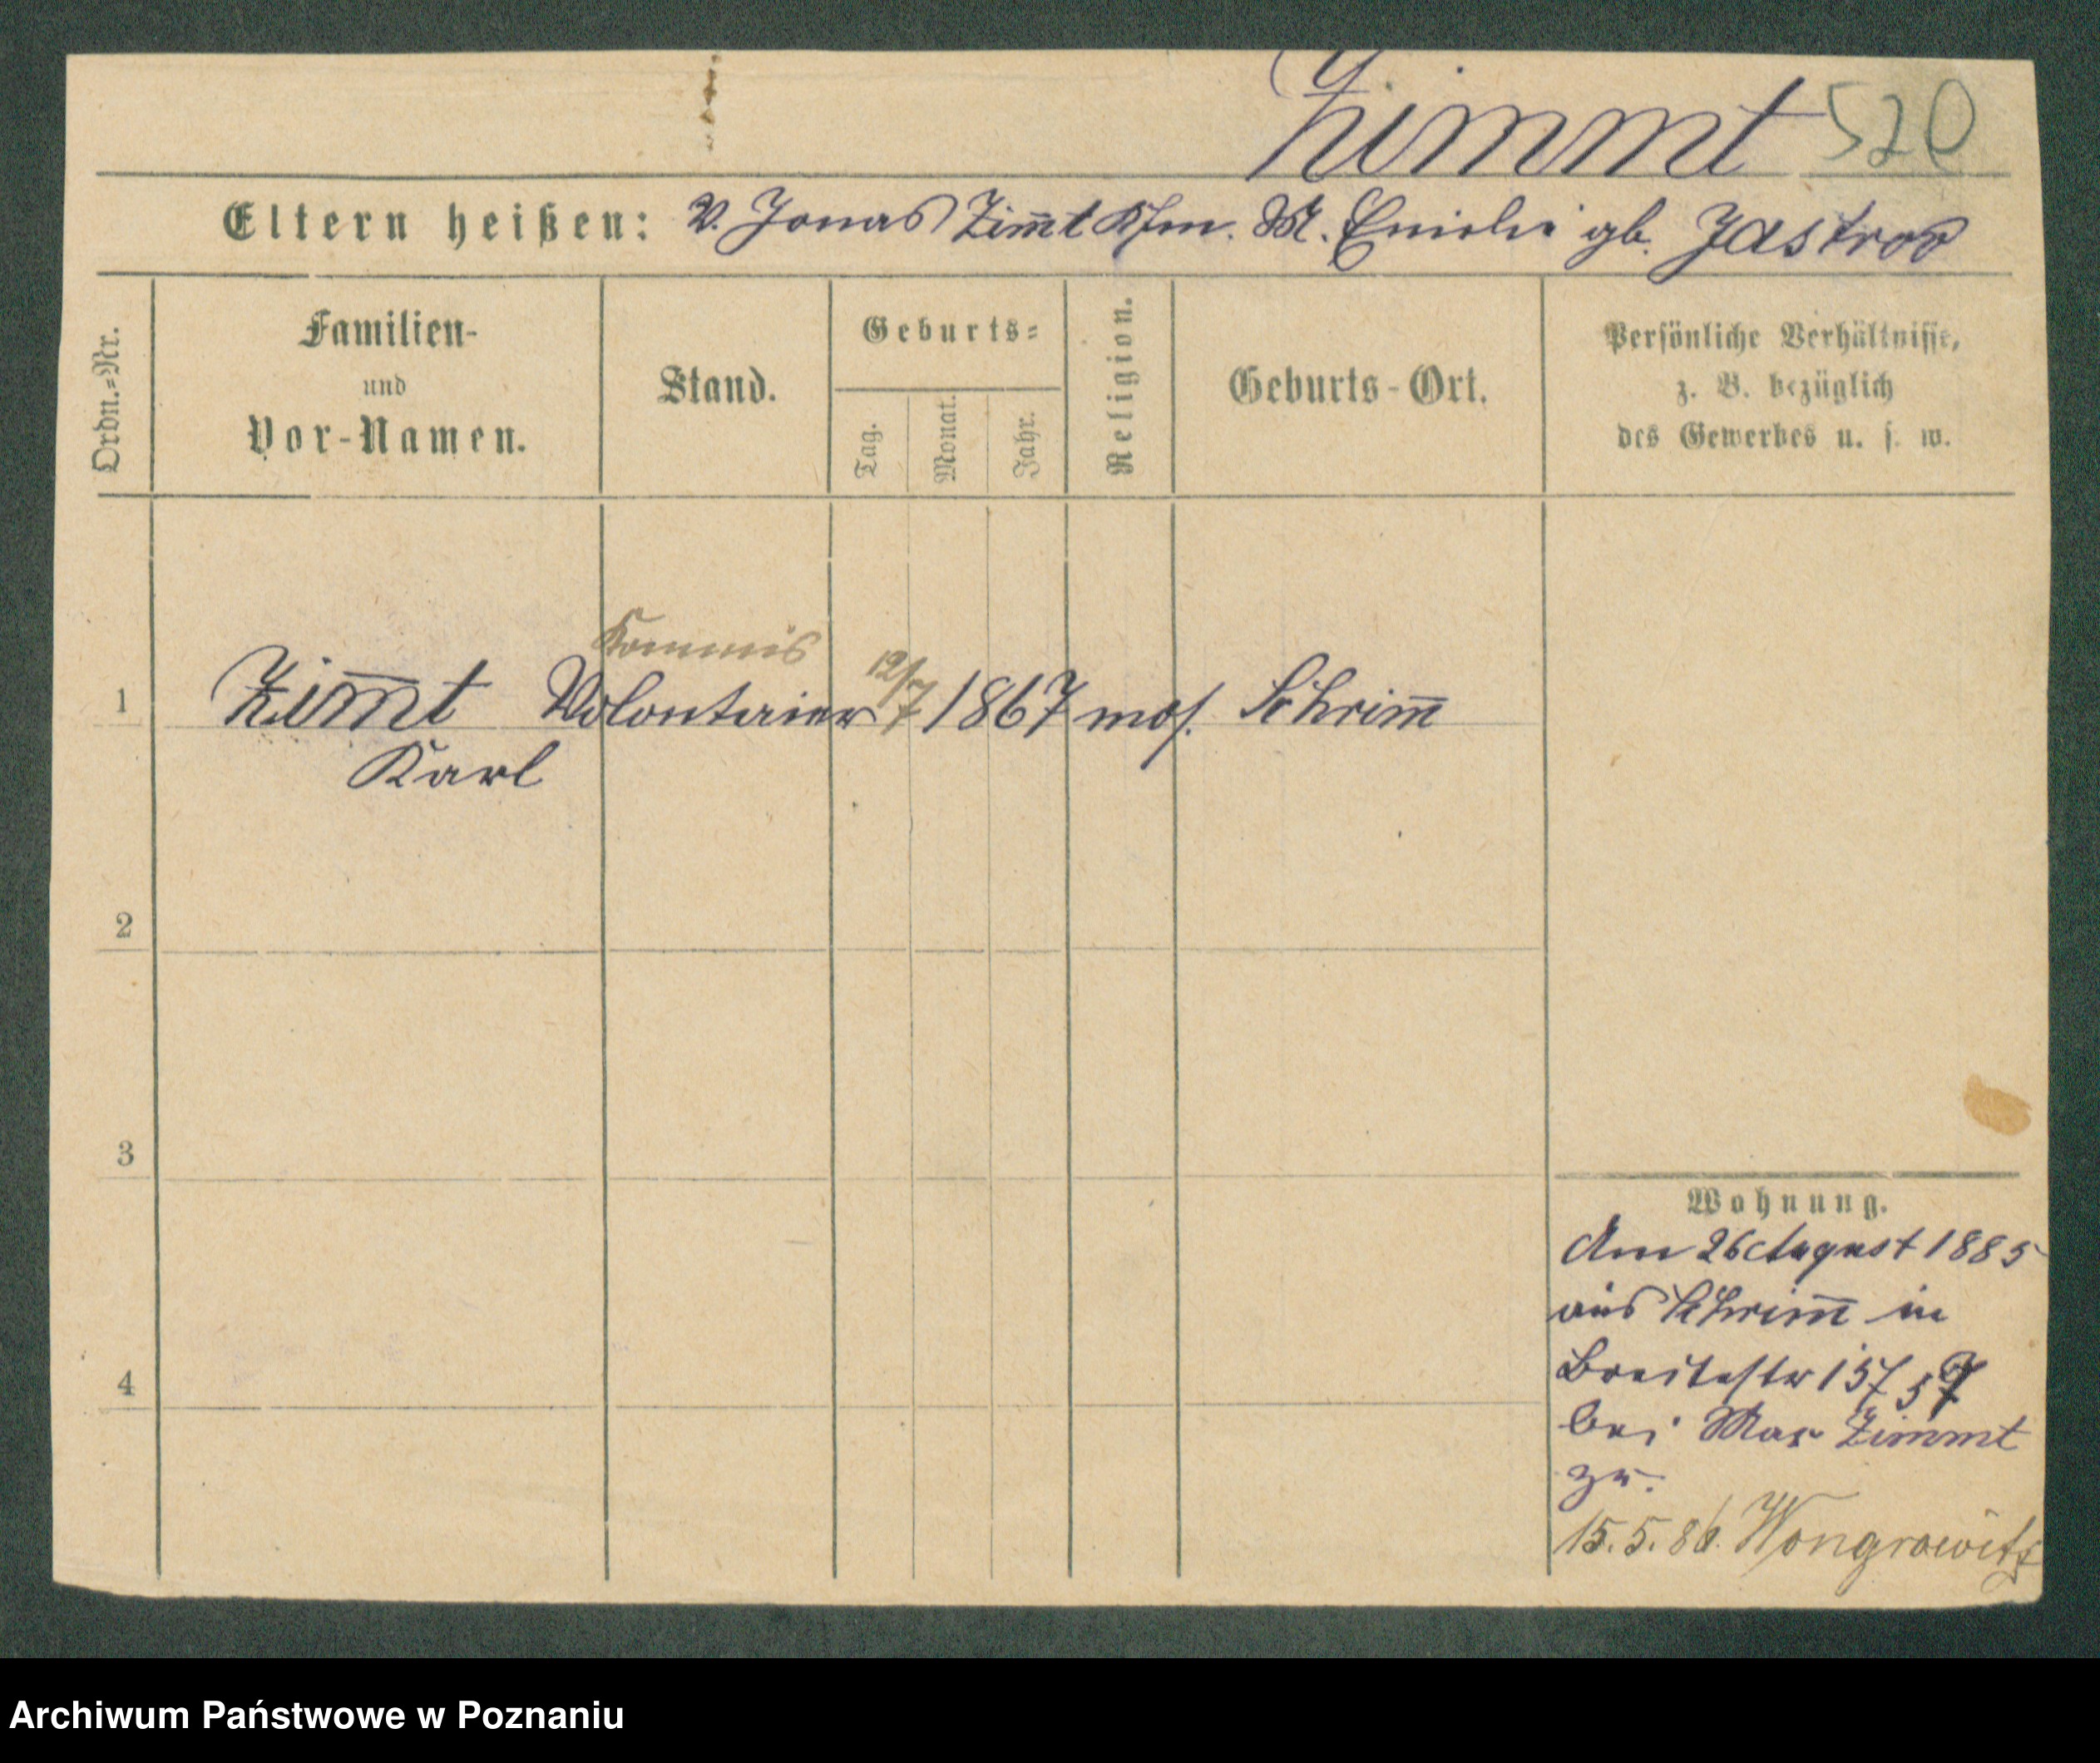 Zimmt 520
Eltern heißen: V. Jonas Zim̄t Kfm. M. Emilie gb. Jastrow
Ordn.=Nr.
Familien-
und
Vor-Namen.
Stand.
Geburts=
Tag.
Monat.
Jahr.
Religion.
Geburts-Ort.
Persönliche Verhältnisse,
z. B. bezüglich
des Gewerbes u. s. w.
Kommis
1 Zim̄t Volontairer 12/7 1867 mos. Schrim̄
Karl
2
3
4
Wohnung.
Am 26 August 1885
aus Schrim̄ in
Breitestr 15/
bei Max Zimmt
zu.
15.5.86. Wongrowitz
Archiwum Państwowe w Poznaniu